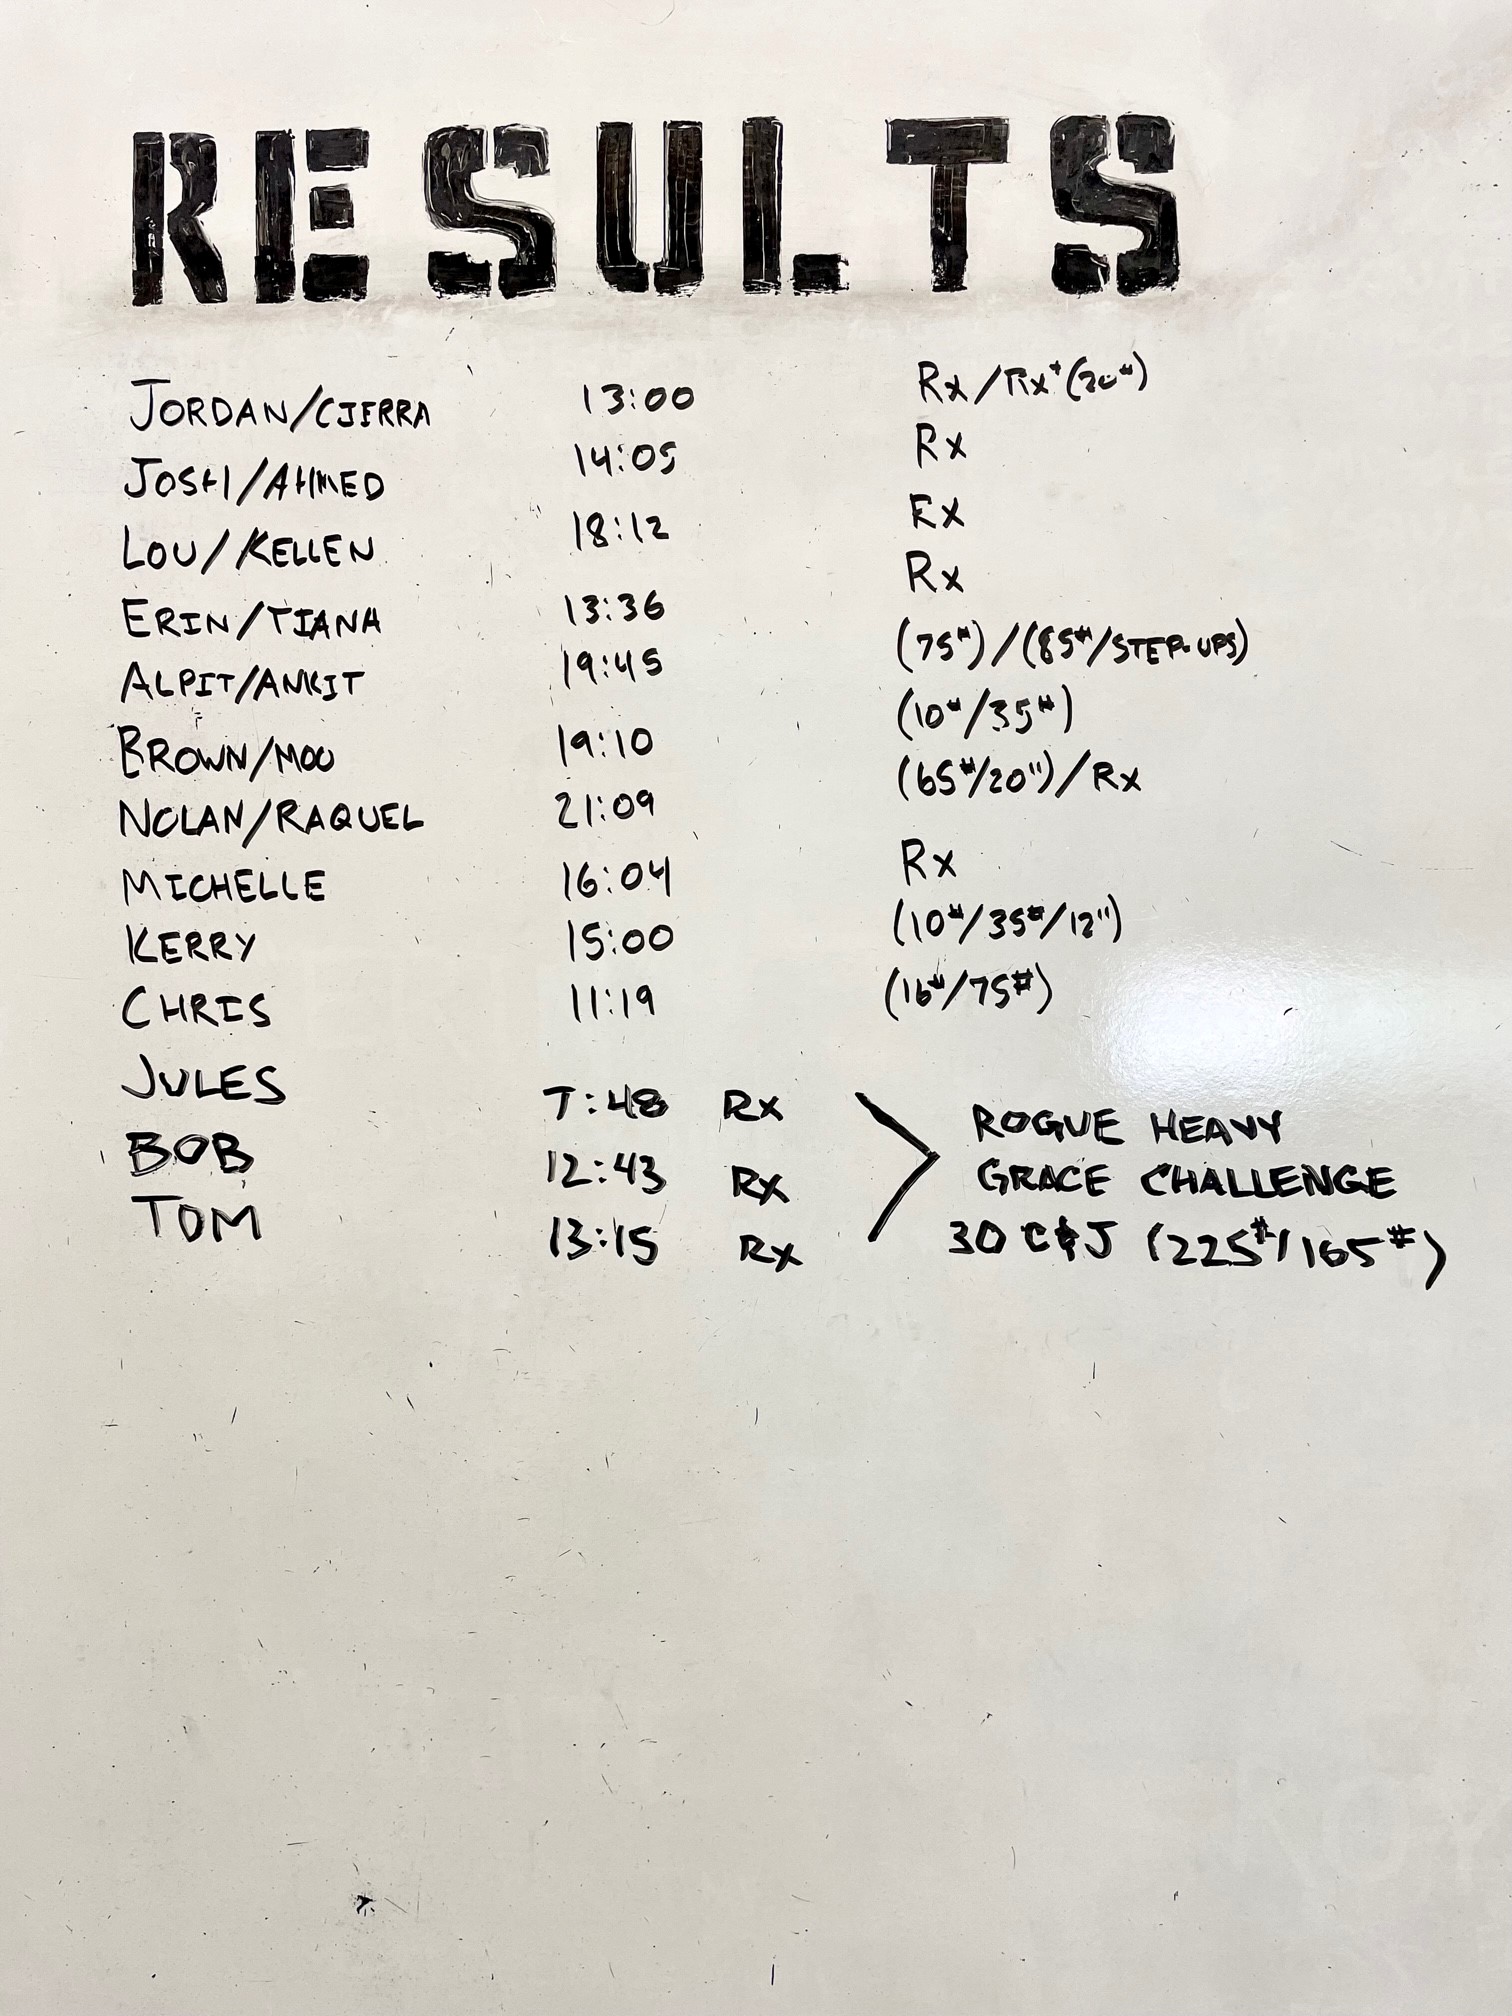 RESULTS
JORDAN/CIERRA 13:00 Rx/Rx+(20#)
JOSH/AHMED 14:05 Rx
LOU/KELLEN 18:12 Rx
ERIN/TIANA 13:36 Rx
ALPIT/ANKIT 19:45 (75#)/(85#/STEP-UPS)
BROWN/MOO 19:10 (10#/35#)
NOLAN/RAQUEL 21:09 (65#/20")/Rx
MICHELLE 16:04 Rx
KERRY 15:00 (10#/35#/12")
CHRIS 11:19 (16#/75#)
JULES 7:48 Rx ROGUE HEAVY
BOB 12:43 Rx GRACE CHALLENGE
TOM 13:15 Rx 30 C&J (225#/165#)